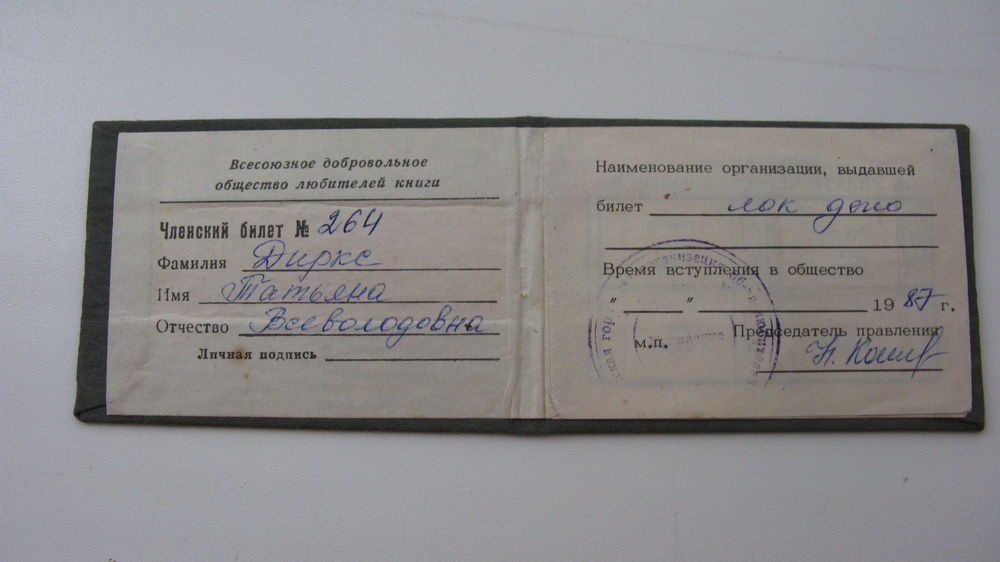 Всесоюзное добровольное
общество любителей книги
Членский билет № 264
Фамилия Диркс
Имя Татьяна
Отчество Всеволодовна
Личная подпись
Наименование организации, выдавшей
билет лок депо
Время вступления в общество
" " 1987 г.
Председатель правления
м.п.